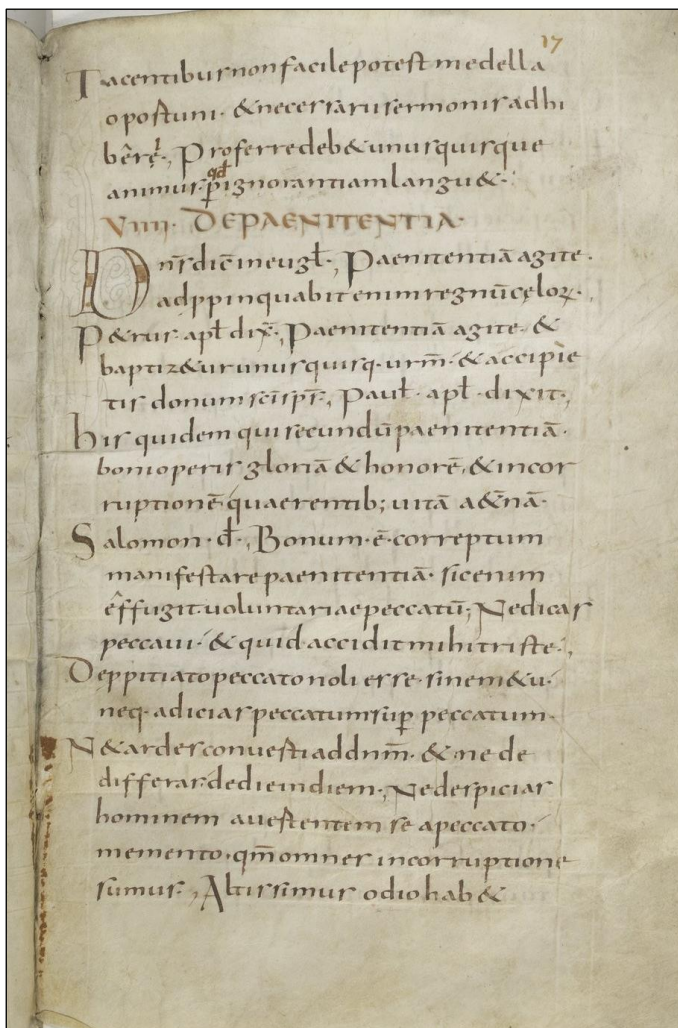 17
Tacentibus non facile potest medella
opostuni · & necessarii sermonis adhi
bērę, Proferre deb& unusquisque
animus qđ p ignorantiam langu& ·
VIIII · DE PAENITENTIA ·
Dn̄s dic̄ in eugł · Paenitentiā agite ·
adppinquabit enim regnū cęloꝝ ·
P&rus · apł dix̄, Paenitentiā agite · &
baptiz&ur unusquisq · urm̄ · & accipie
tis donum sc̄i sp̄s, Pauł · apł · dixit,
his quidem qui secundū paenitentiā ·
boni operis gloriā & honorē, & incor
ruptionē quaerentib; uitā a&nā ·
Salomon · đ, Bonum · ē · correptum
manifestare paenitentiā · sic enim
effugit · uoluntariae peccatū, Ne dicas
peccaui · & quid accidit mihi triste ·,
De ppitiato peccato noli esse · sine m&u ·
neq · adicias peccatum sup peccatum ·
N& ardes conuesti ad dnm̄ · & ne de
differas · de die in diem ·, Ne despicias
hominem auestentem se a peccato ·
memento · qm̄ omnes in corruptione
sumus ·, Altissimus odio hab&